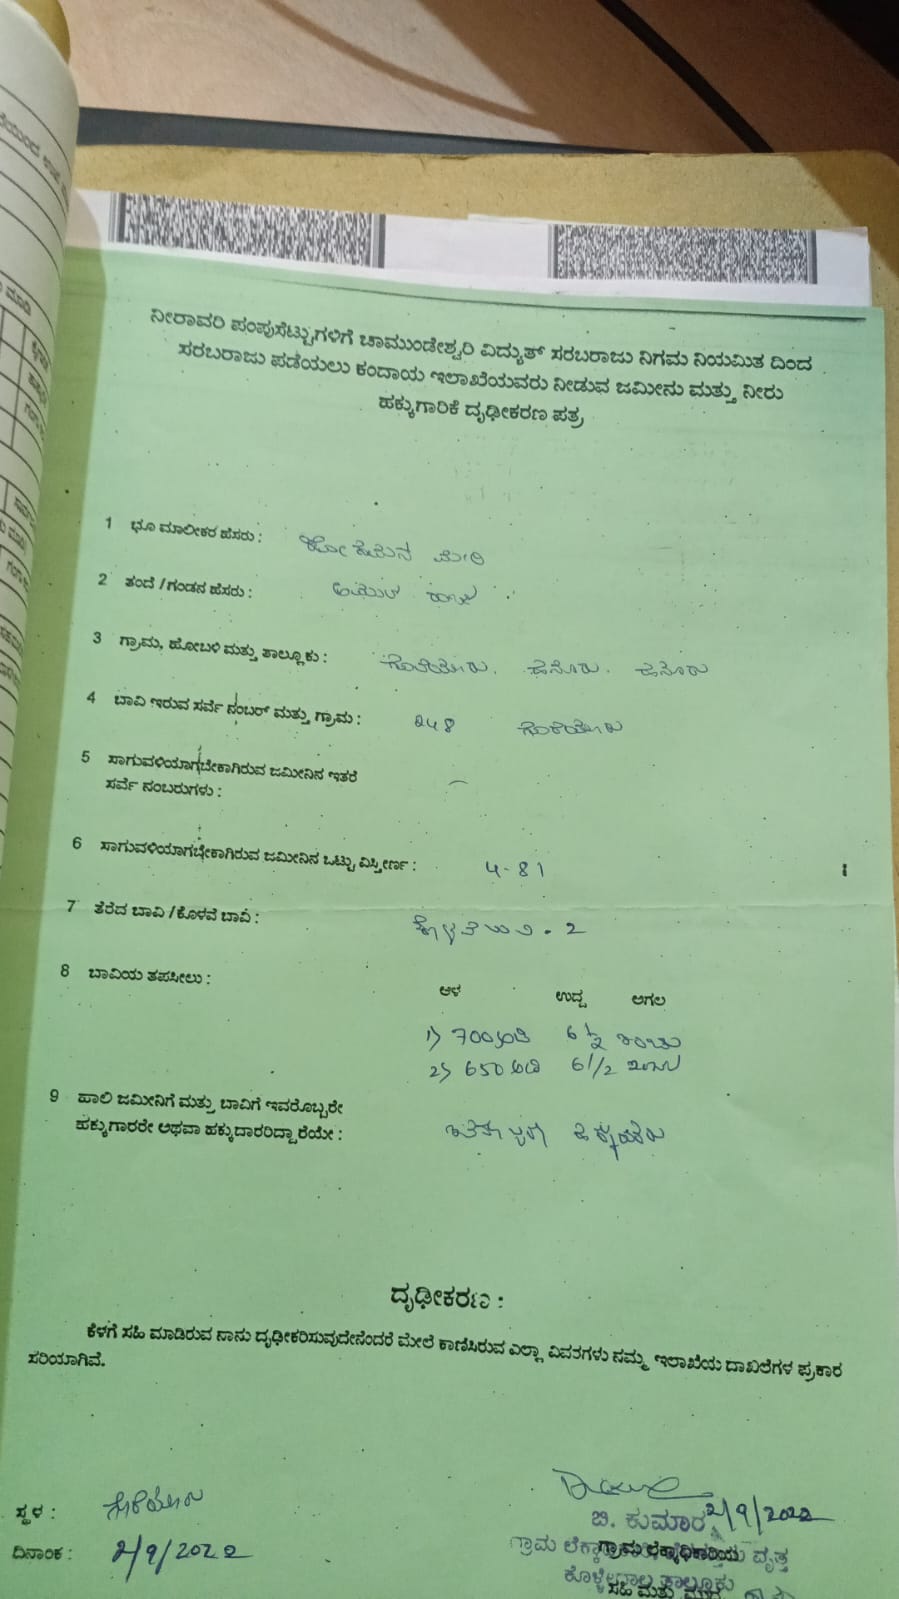 ನೀರಾವರಿ ಪಂಪುಸೆಟ್ಟುಗಳಿಗೆ ಚಾಮುಂಡೇಶ್ವರಿ ವಿದ್ಯುತ್ ಸರಬರಾಜು ನಿಗಮ ನಿಯಮಿತ ದಿಂದ
ಸರಬರಾಜು ಪಡೆಯಲು ಕಂದಾಯ ಇಲಾಖೆಯವರು ನೀಡುವ ಜಮೀನು ಮತ್ತು ನೀರು
ಹಕ್ಕುಗಾರಿಕೆ ದೃಢೀಕರಣ ಪತ್ರ
1 ಭೂ ಮಾಲೀಕರ ಹೆಸರು : ಮೇರಿ
2 ತಂದೆ / ಗಂಡನ ಹೆಸರು :
3 ಗ್ರಾಮ, ಹೋಬಳಿ ಮತ್ತು ತಾಲ್ಲೂಕು : ಹನೂರು. ಹನೂರು
4 ಬಾವಿ ಇರುವ ಸರ್ವೆ ನಂಬರ್ ಮತ್ತು ಗ್ರಾಮ : 248
5 ಸಾಗುವಳಿಯಾಗಬೇಕಾಗಿರುವ ಜಮೀನಿನ ಇತರೆ
ಸರ್ವೆ ನಂಬರುಗಳು : –
6 ಸಾಗುವಳಿಯಾಗಬೇಕಾಗಿರುವ ಜಮೀನಿನ ಒಟ್ಟು ವಿಸ್ತೀರ್ಣ : 4-81
7 ತೆರೆದ ಬಾವಿ / ಕೊಳವೆ ಬಾವಿ : ಕೊಳವೆಬಾವಿ - 2
8 ಬಾವಿಯ ತಪಸೀಲು : ಆಳ ಉದ್ದ ಅಗಲ
1) 700 ಅಡಿ 6 1/2 ಇಂಚು
2) 650 ಅಡಿ 6 1/2 ಇಂಚು
9 ಹಾಲಿ ಜಮೀನಿಗೆ ಮತ್ತು ಬಾವಿಗೆ ಇವರೊಬ್ಬರೇ
ಹಕ್ಕುಗಾರರೇ ಅಥವಾ ಹಕ್ಕುದಾರರಿದ್ದಾರೆಯೇ :
ದೃಢೀಕರಣ :
ಕೆಳಗೆ ಸಹಿ ಮಾಡಿರುವ ನಾನು ದೃಢೀಕರಿಸುವುದೇನೆಂದರೆ ಮೇಲೆ ಕಾಣಿಸಿರುವ ಎಲ್ಲಾ ವಿವರಗಳು ನಮ್ಮ ಇಲಾಖೆಯ ದಾಖಲೆಗಳ ಪ್ರಕಾರ
ಸರಿಯಾಗಿವೆ.
ಸ್ಥಳ :
ಬಿ. ಕುಮಾರ 2/9/2022
ದಿನಾಂಕ : 2/9/2022
ಗ್ರಾಮ ಲೆಕ್ಕಾಧಿಕಾರಿಯ ವೃತ್ತ
ಕೊಳ್ಳೇಗಾಲ ತಾಲ್ಲೂಕು
ಸಹಿ ಮತ್ತು